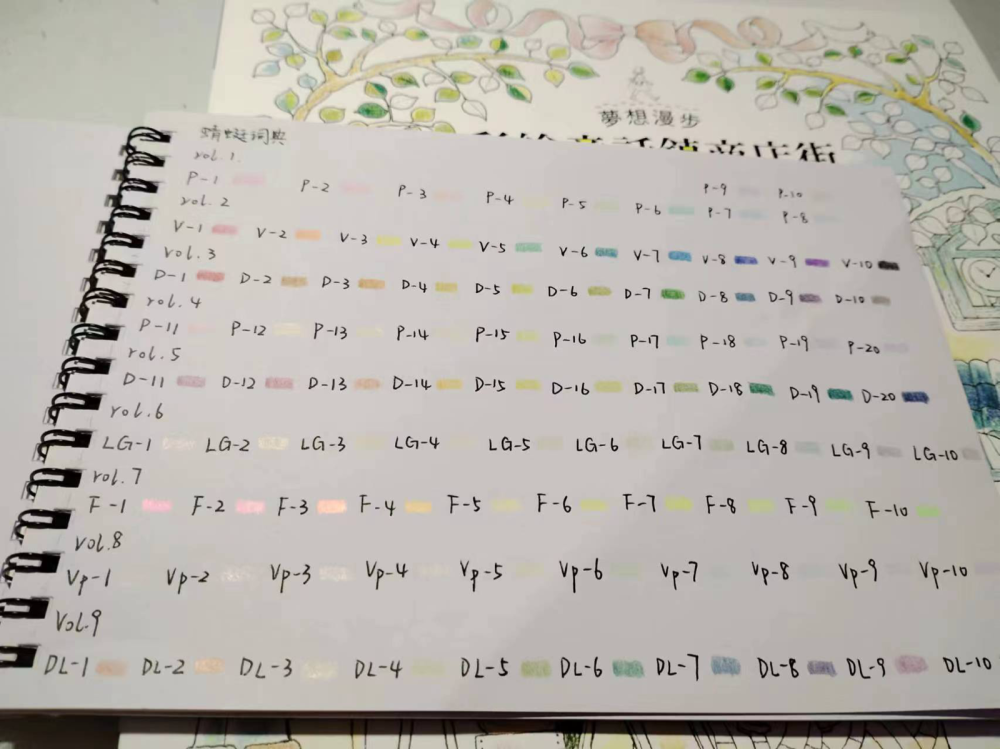 夢想漫步
蜻蜓词典
vol.1.
P-9 P-10
P-1 P-2 P-3 P-4 P-5 P-6 P-7 P-8
vol.2
V-1 V-2 V-3 V-4 V-5 V-6 V-7 V-8 V-9 V-10
vol.3
D-1 D-2 D-3 D-4 D-5 D-6 D-7 D-8 D-9 D-10
vol.4
P-11 P-12 P-13 P-14 P-15 P-16 P-17 P-18 P-19 P-20
vol.5
D-11 D-12 D-13 D-14 D-15 D-16 D-17 D-18 D-19 D-20
vol.6
LG-1 LG-2 LG-3 LG-4 LG-5 LG-6 LG-7 LG-8 LG-9 LG-10
vol.7
F-1 F-2 F-3 F-4 F-5 F-6 F-7 F-8 F-9 F-10
vol.8
Vp-1 Vp-2 Vp-3 Vp-4 Vp-5 Vp-6 Vp-7 Vp-8 Vp-9 Vp-10
Vol.9
DL-1 DL-2 DL-3 DL-4 DL-5 DL-6 DL-7 DL-8 DL-9 DL-10